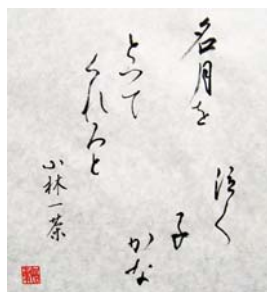 名月を
とつて
くれろと
泣く
子
かな
小林一茶